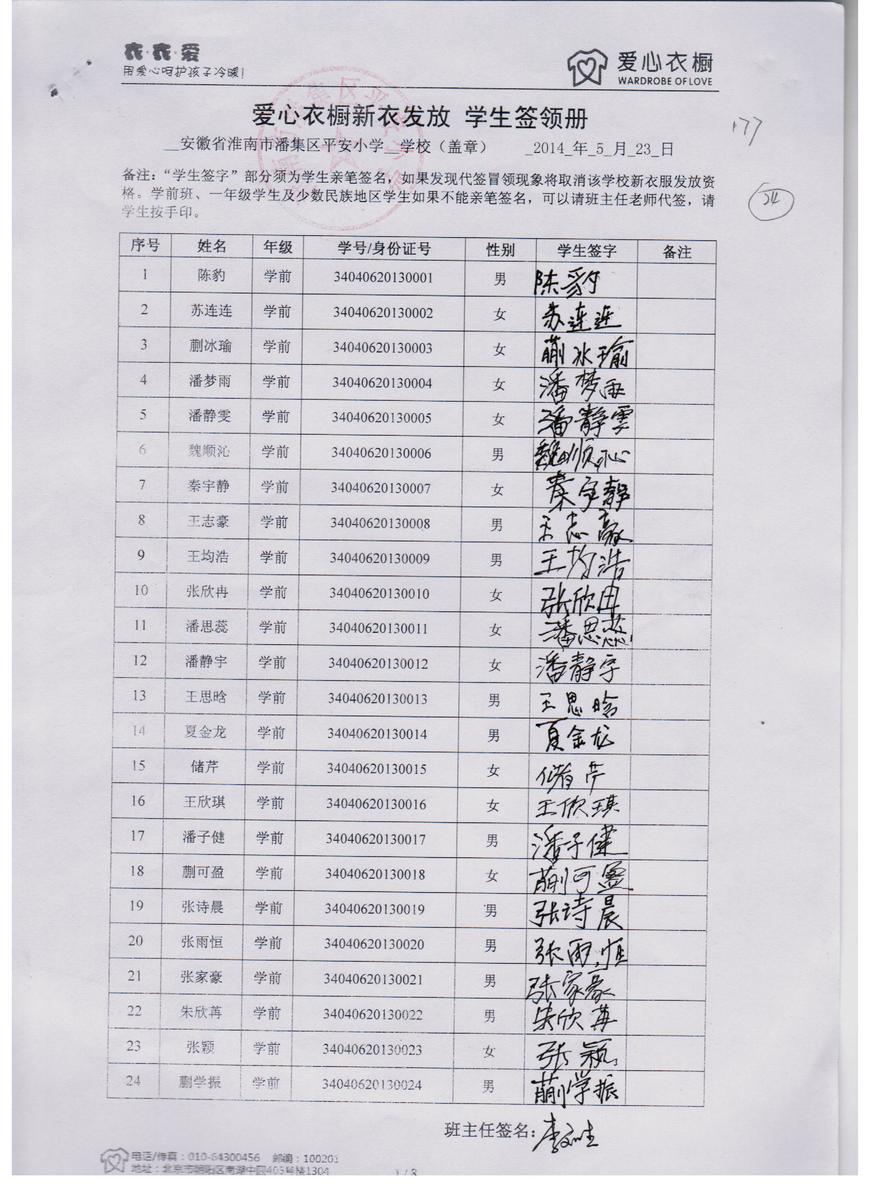 衣·衣·爱
用爱心呵护孩子冷暖!
爱心衣橱
WARDROBE OF LOVE
爱心衣橱新衣发放 学生签领册
177
__安徽省淮南市潘集区平安小学__学校（盖章） _2014_年_5_月_23_日
备注：“学生签字”部分须为学生亲笔签名，如果发现代签冒领现象将取消该学校新衣服发放资
格。学前班、一年级学生及少数民族地区学生如果不能亲笔签名，可以请班主任老师代签，请
学生按手印。
24
序号 姓名 年级 学号/身份证号 性别 学生签字 备注
1 陈豹 学前 34040620130001 男 陈豹
2 苏连连 学前 34040620130002 女 苏连连
3 蒯冰瑜 学前 34040620130003 女 蒯冰瑜
4 潘梦雨 学前 34040620130004 女 潘梦雨
5 潘静雯 学前 34040620130005 女 潘静雯
6 魏顺沁 学前 34040620130006 男 魏顺沁
7 秦宇静 学前 34040620130007 女 秦宇静
8 王志豪 学前 34040620130008 男 王志豪
9 王均浩 学前 34040620130009 男 王均浩
10 张欣冉 学前 34040620130010 女 张欣冉
11 潘思蕊 学前 34040620130011 女 潘思蕊
12 潘静宇 学前 34040620130012 女 潘静宇
13 王思晗 学前 34040620130013 男 王思晗
14 夏金龙 学前 34040620130014 男 夏金龙
15 储芹 学前 34040620130015 女 储芹
16 王欣琪 学前 34040620130016 女 王欣琪
17 潘子健 学前 34040620130017 男 潘子健
18 蒯可盈 学前 34040620130018 女 蒯可盈
19 张诗晨 学前 34040620130019 男 张诗晨
20 张雨恒 学前 34040620130020 男 张雨恒
21 张家豪 学前 34040620130021 男 张家豪
22 朱欣苒 学前 34040620130022 男 朱欣苒
23 张颖 学前 34040620130023 女 张颖
24 蒯学振 学前 34040620130024 男 蒯学振
班主任签名：李
电话/传真：010-64300456 邮编：100201
地址：北京市朝阳区南湖中园403号楼1304
1/8